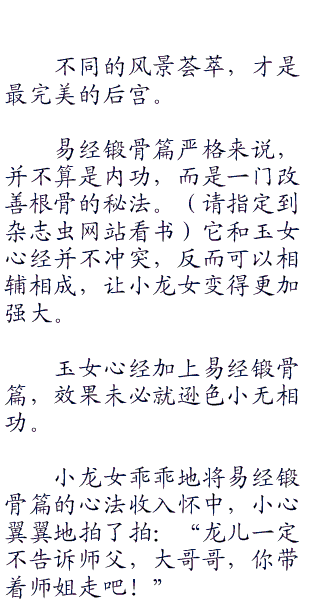 不同的风景荟萃，才是
最完美的后宫。
易经锻骨篇严格来说，
并不算是内功，而是一门改
善根骨的秘法。（请指定到
杂志虫网站看书）它和玉女
心经并不冲突，反而可以相
辅相成，让小龙女变得更加
强大。
玉女心经加上易经锻骨
篇，效果未必就逊色小无相
功。
小龙女乖乖地将易经锻
骨篇的心法收入怀中，小心
翼翼地拍了拍：“龙儿一定
不告诉师父，大哥哥，你带
着师姐走吧！”